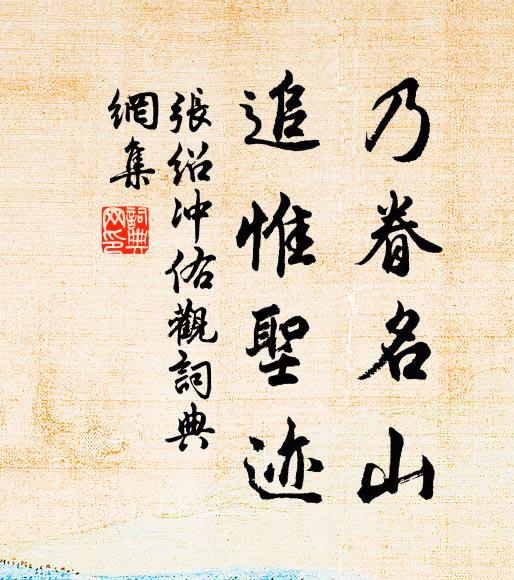 乃眷名山
追惟聖迹
張紹冲佑觀詞典
網集
詞典
网印